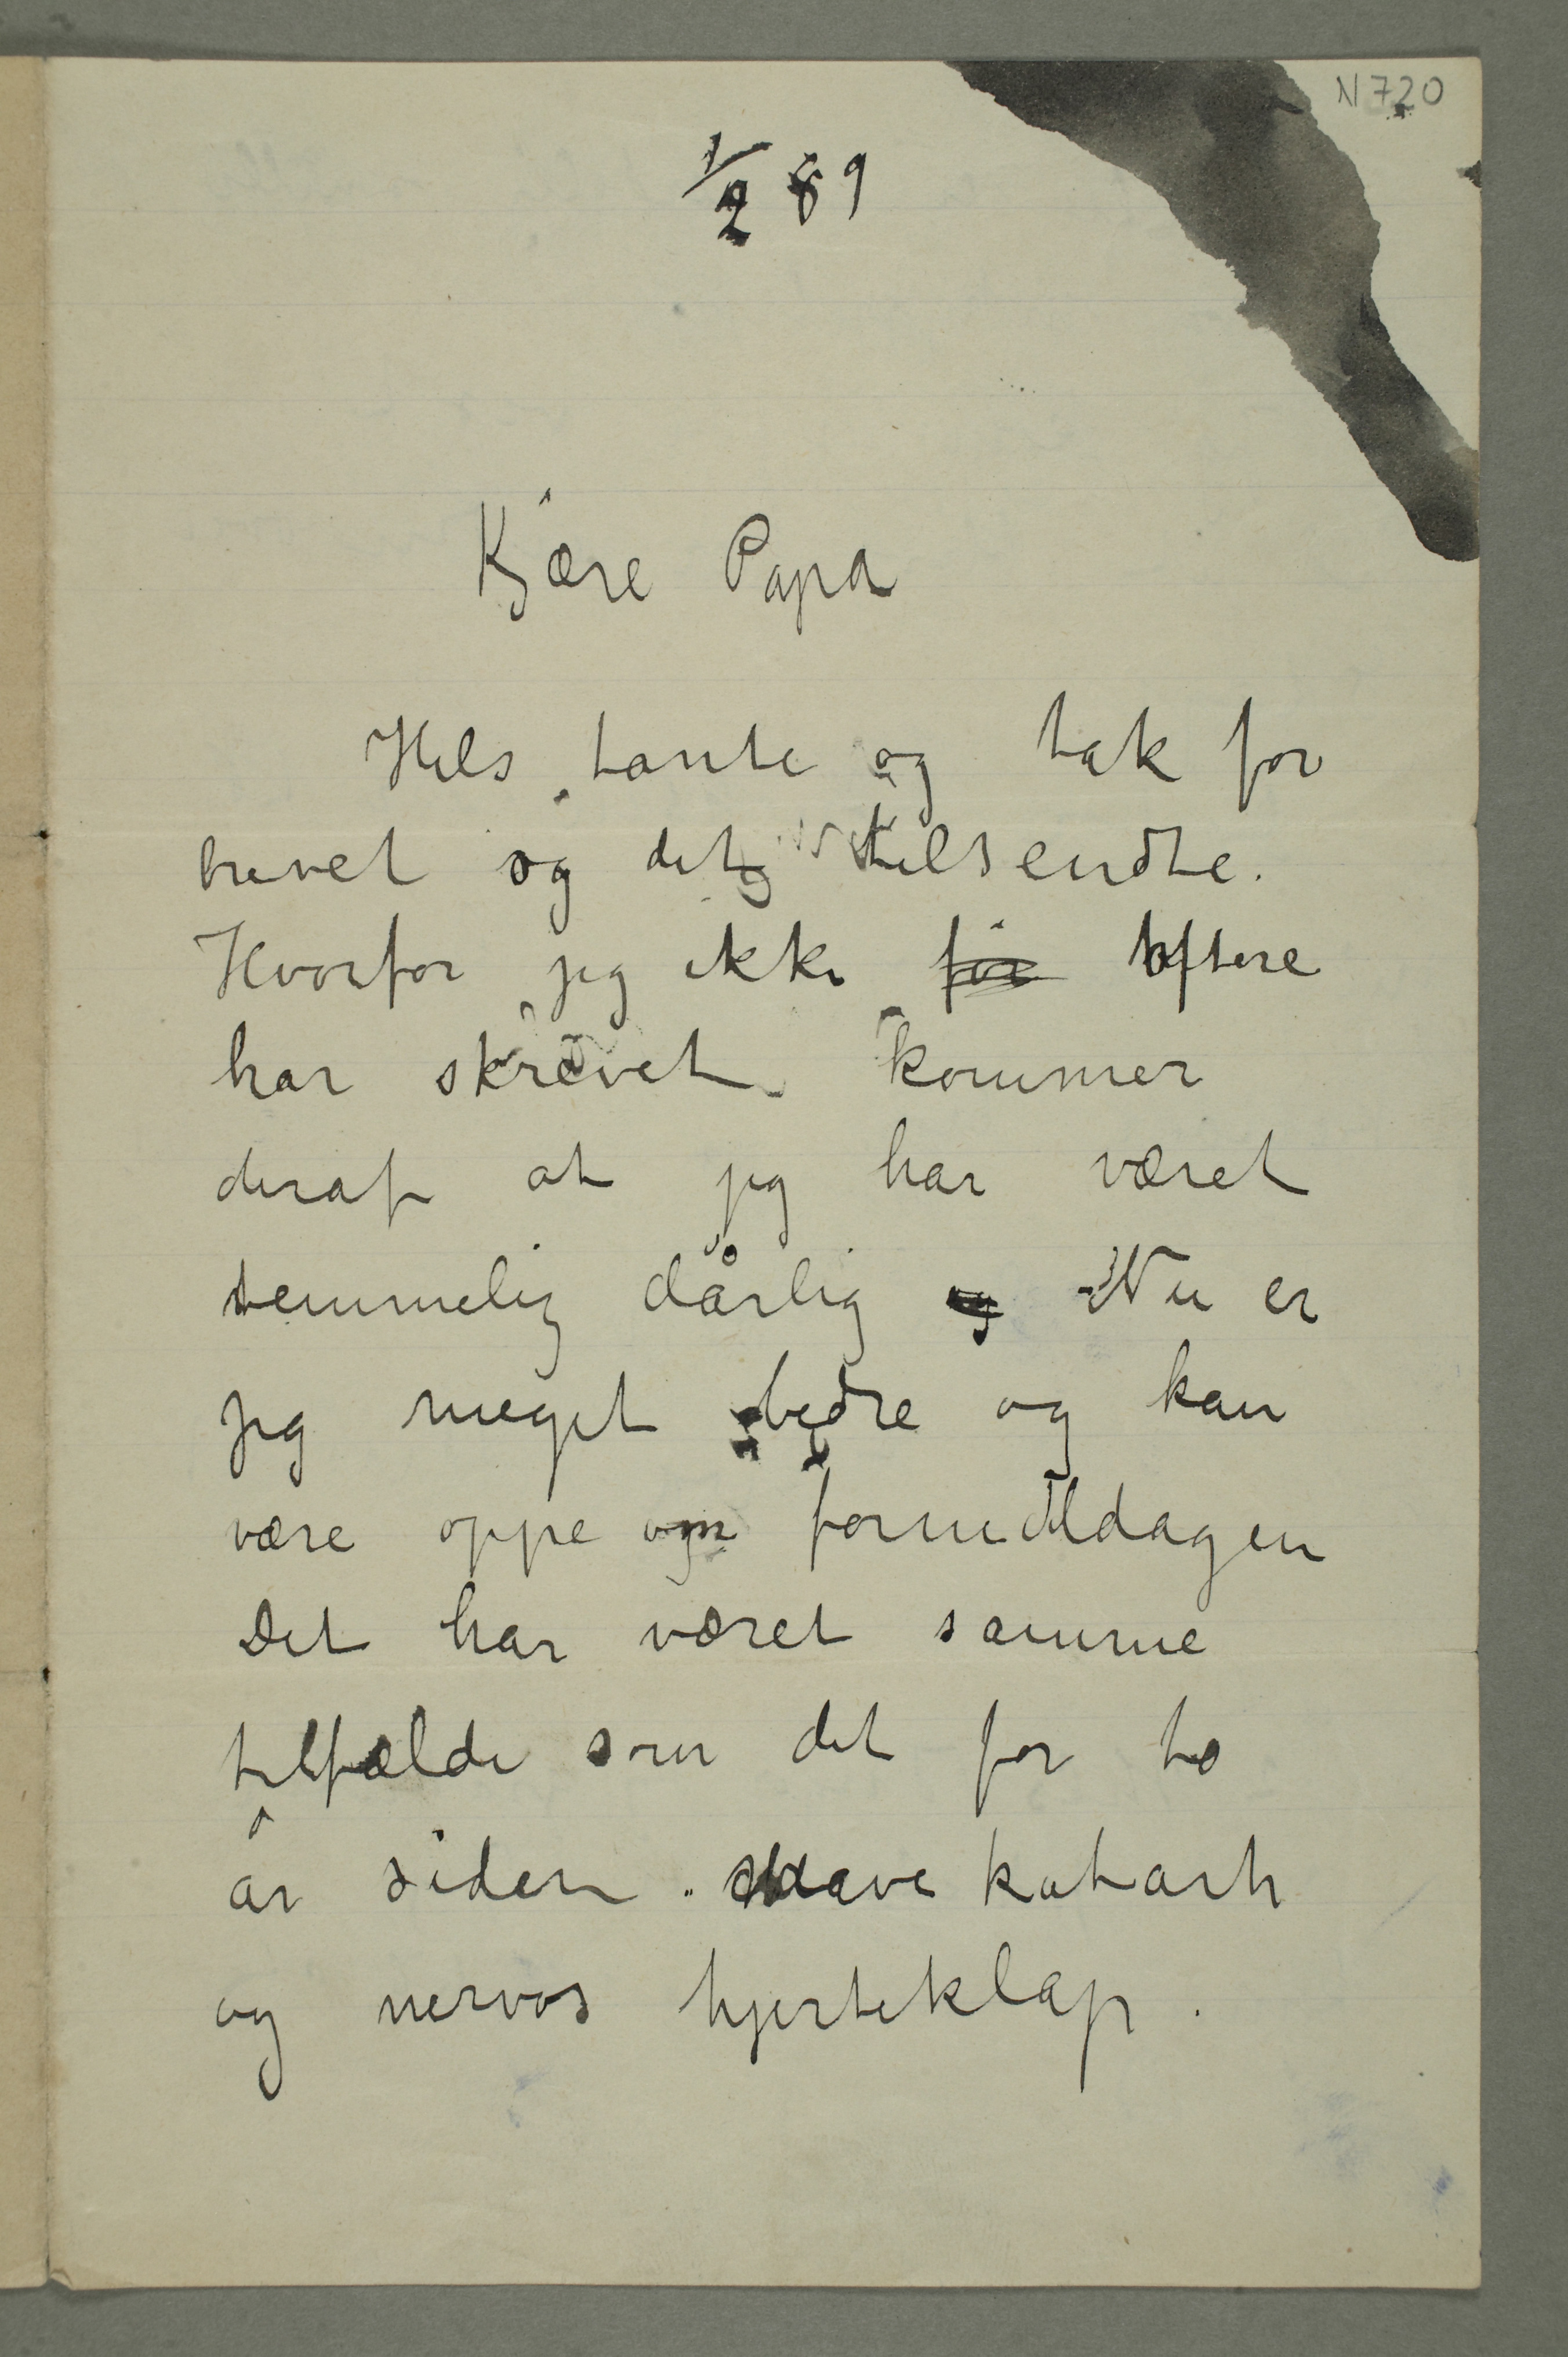 N 720
1/2 89
Kjære Papa
Hels tante og tak for
brevet og det tilsendte.
Hvorfor jeg ikke før oftere
har skrevet kommer
deraf at jeg har været
temmelig dårlig og Nu er
jeg meget bedre og kan
være oppe om formiddagen
Det har været samme
tilfælde som det for to
år siden. Mave katarh
og nervøs hjerteklap.